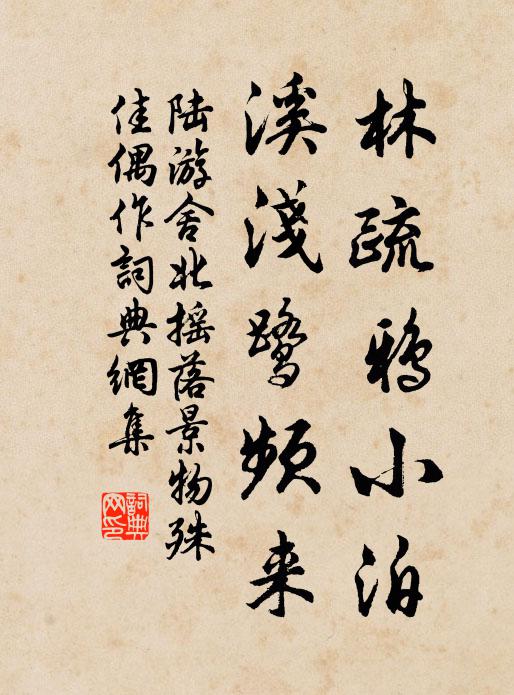 林疏鸦小泊
溪淺鹭频来
陆游舍北摇落景物殊
佳偶作詞典網集
詞典网印